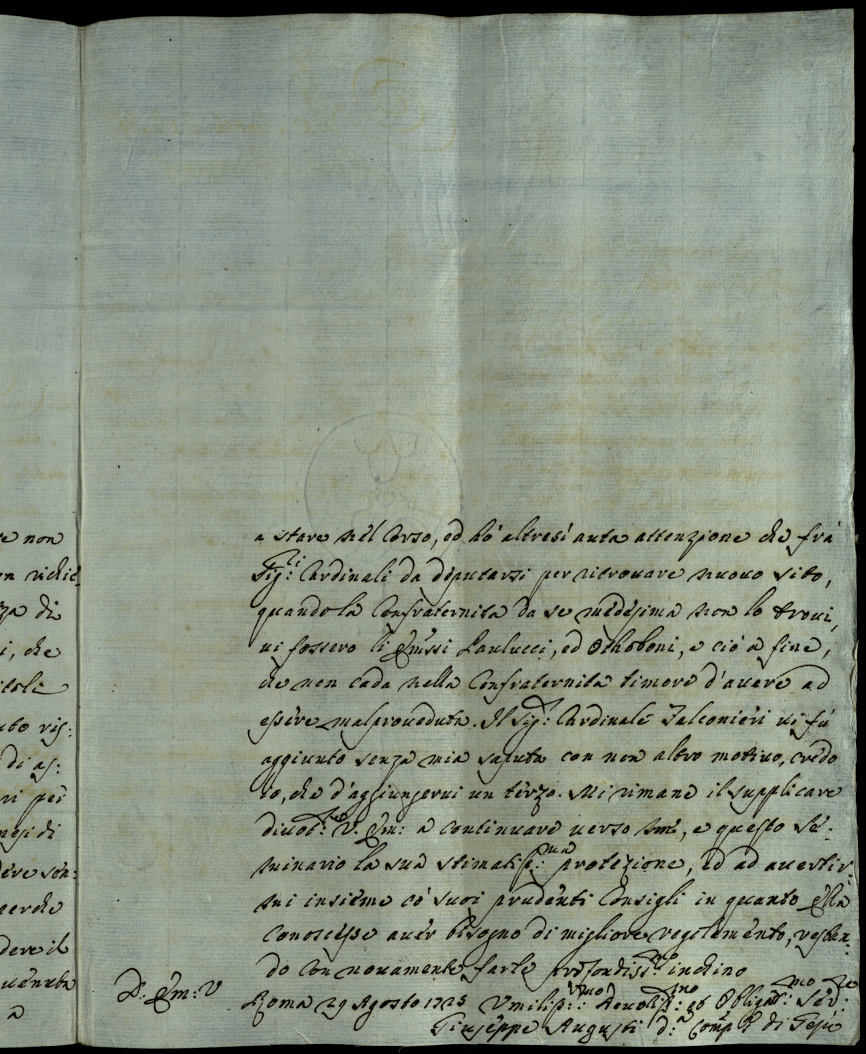 e non
on richie-
za di
i, che
itoli
uto ris:
di as:
ri pei
mesi di
dere son:
perche
dere il
uenuta
a
a stare nel Corso, ed hò altresi auta attenzione che frà
Sig:ri Cardinali da deputarsi per ritrouare nuouo sito,
quando la Confraternita da se medesima non lo troui,
ui fossero li Em̃ssi Paulucci, ed Othoboni, e ciò a fine,
che non cada nella Confraternita timore d'auere ad
essere malproueduta. Il Sig:r Cardinale Falconieri ui fù
aggiunto senza mia saputa con non altro motiuo, credo
io, che d'aggiungerui un terzo. Mi rimane il supplicare
diuot:te V. Em: a continuare uerso me, e questo Se-
minario la sua stimatiss:ma protezione, ed ad auertir-
mi insieme co' suoi prudenti Consigli in quanto Ella
conoscesse auer bisogno di migliore regolamento, restan-
do con nouamente farle profondiss:mo inchino
D: Em: V
Roma 29 Agosto 1725 Vmiliss:mo Deuotiss:mo ed Obligat:mo Ser:re
Giuseppe Augusti d:a Comp.a di Gesù